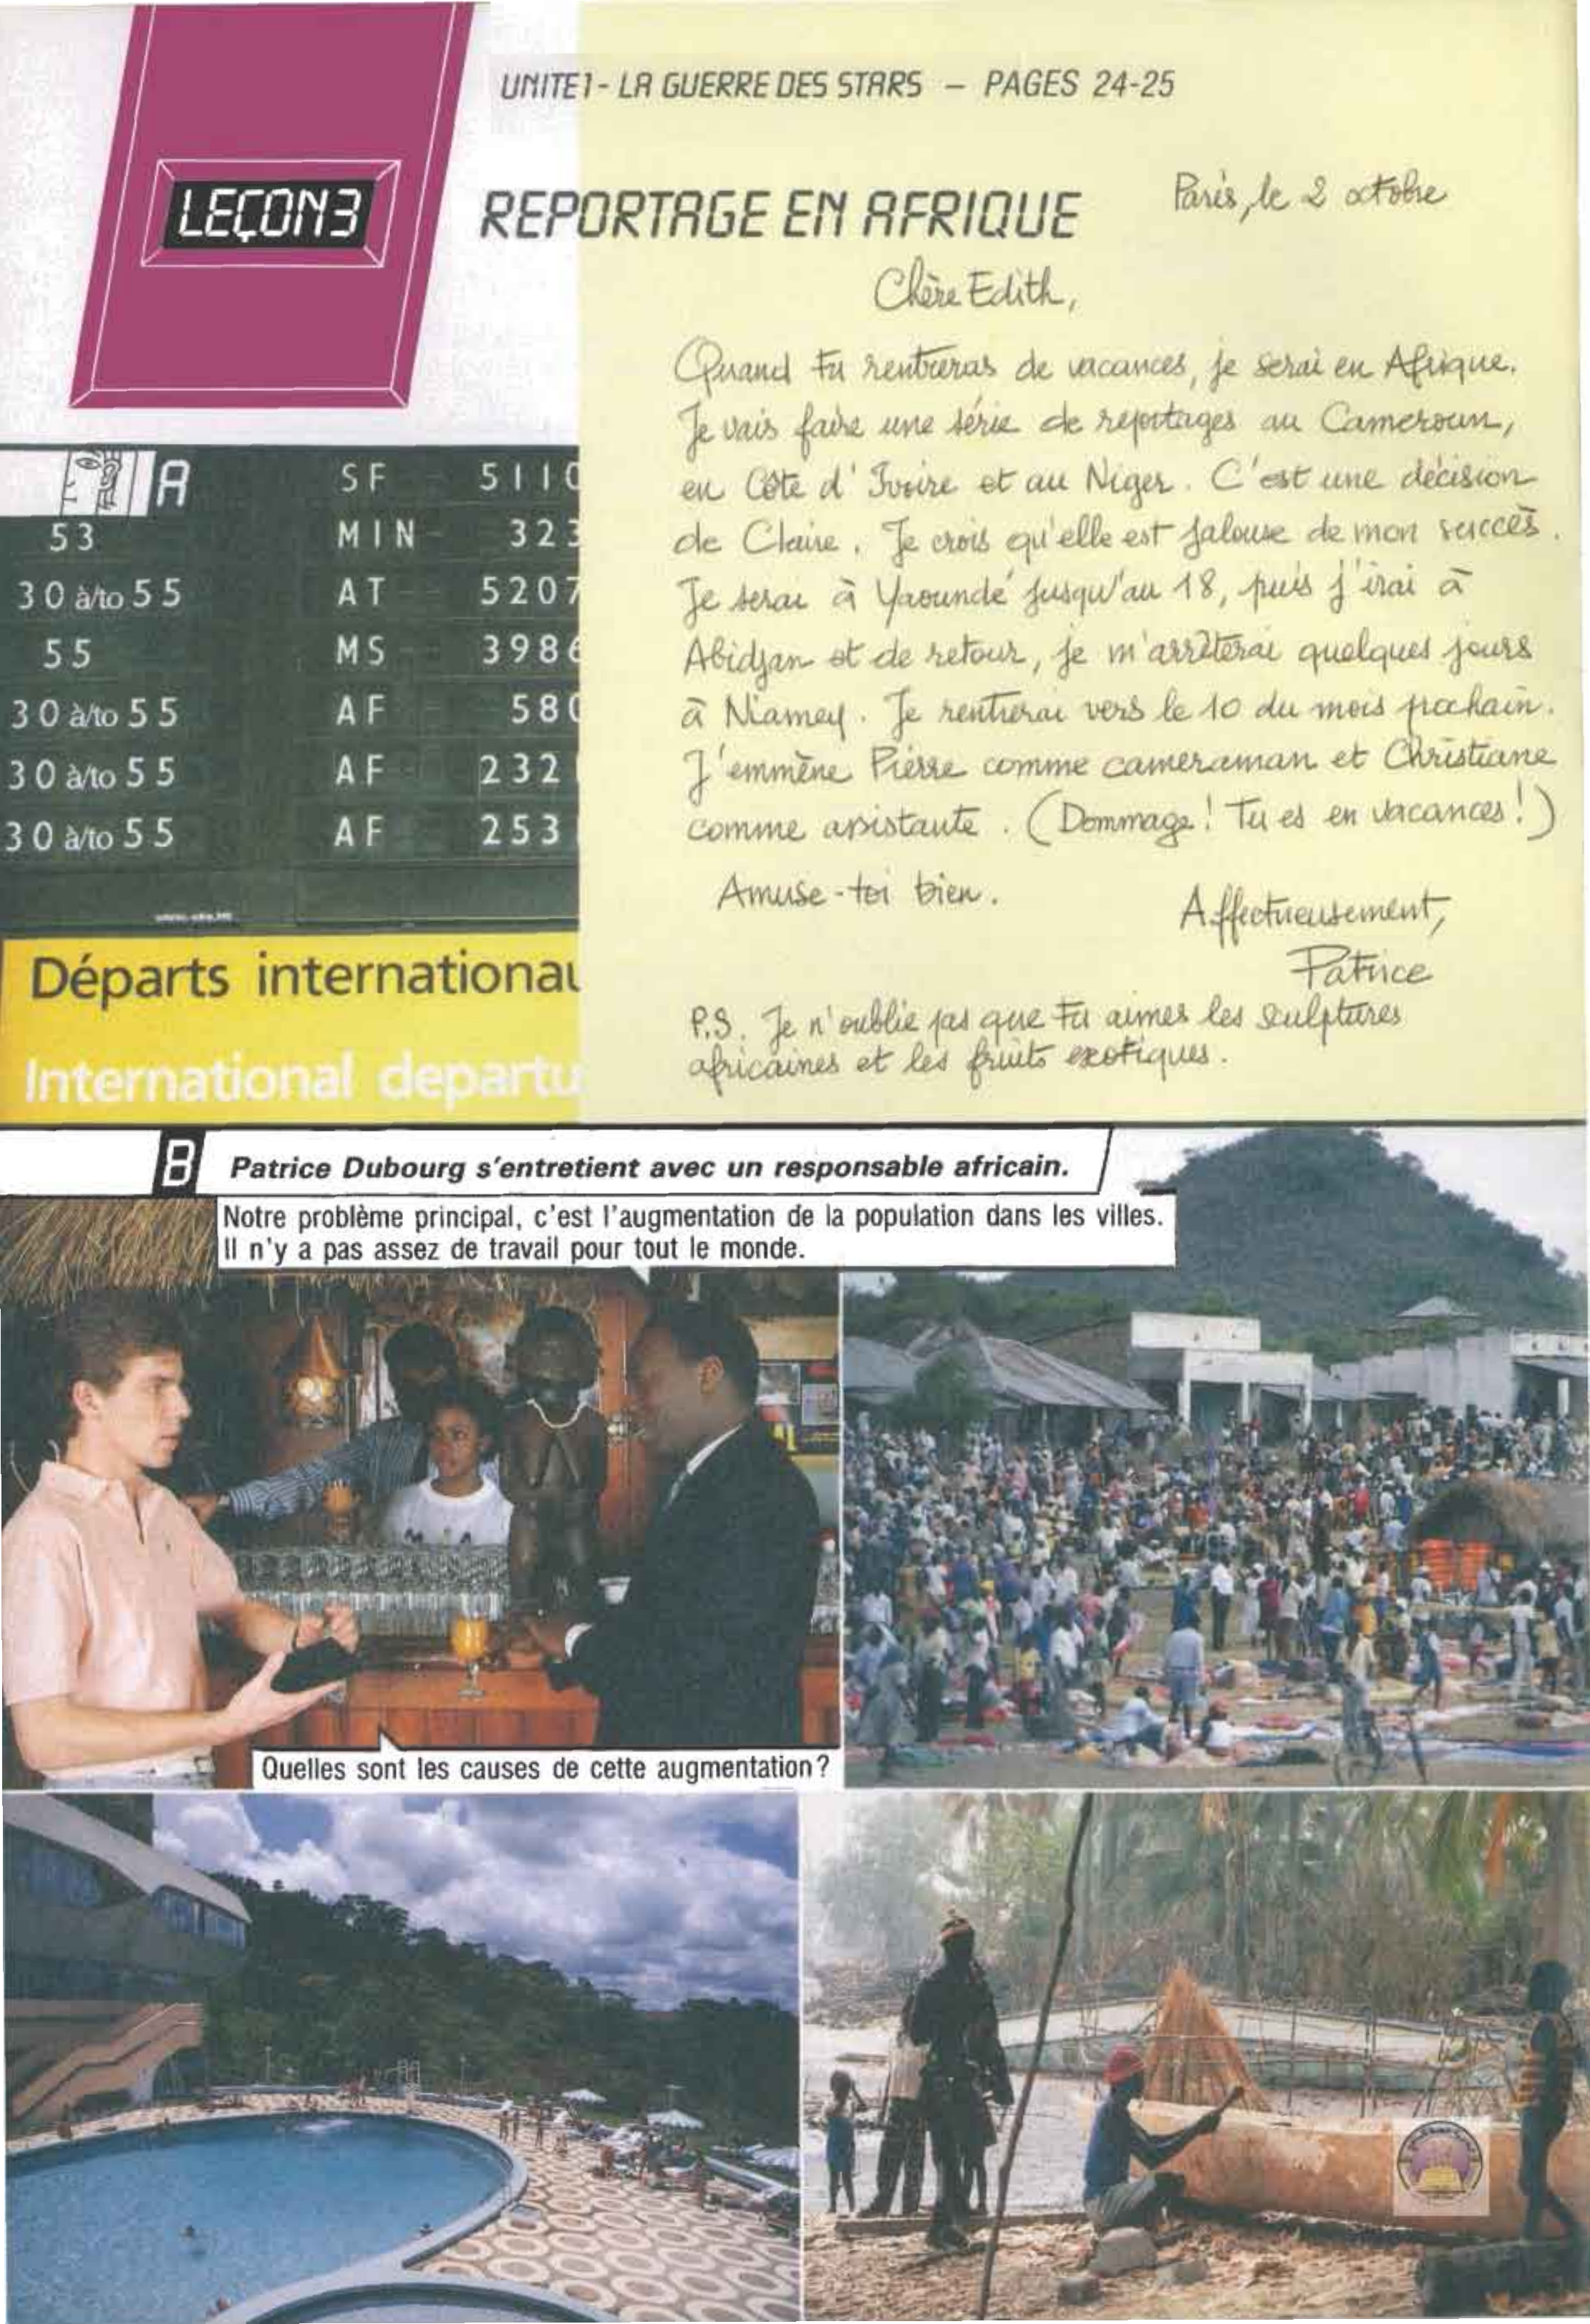 UNITE 1 - LA GUERRE DES STARS – PAGES 24-25
LEÇON 3
REPORTAGE EN AFRIQUE
Paris, le 2 octobre
Chère Edith,
Quand tu rentreras de vacances, je serai en Afrique.
Je vais faire une série de reportages au Cameroun,
en Côte d'Ivoire et au Niger. C'est une décision
de Claire. Je crois qu'elle est jalouse de mon succès.
Je serai à Yaoundé jusqu'au 18, puis j'irai à
Abidjan et de retour, je m'arrêterai quelques jours
à Niamey. Je rentrerai vers le 10 du mois prochain.
J'emmène Pierre comme cameraman et Christiane
comme assistante. (Dommage! Tu es en vacances!)
Amuse-toi bien.
Affectueusement,
Patrice
P.S. Je n'oublie pas que tu aimes les sculptures
africaines et les fruits exotiques.
A
SF 5110
53 MIN 323
30 à/to 55 AT 5207
55 MS 3986
30 à/to 55 AF 580
30 à/to 55 AF 232
30 à/to 55 AF 253
Départs internationau
International departu
B Patrice Dubourg s'entretient avec un responsable africain.
Notre problème principal, c'est l'augmentation de la population dans les villes.
Il n'y a pas assez de travail pour tout le monde.
Quelles sont les causes de cette augmentation?